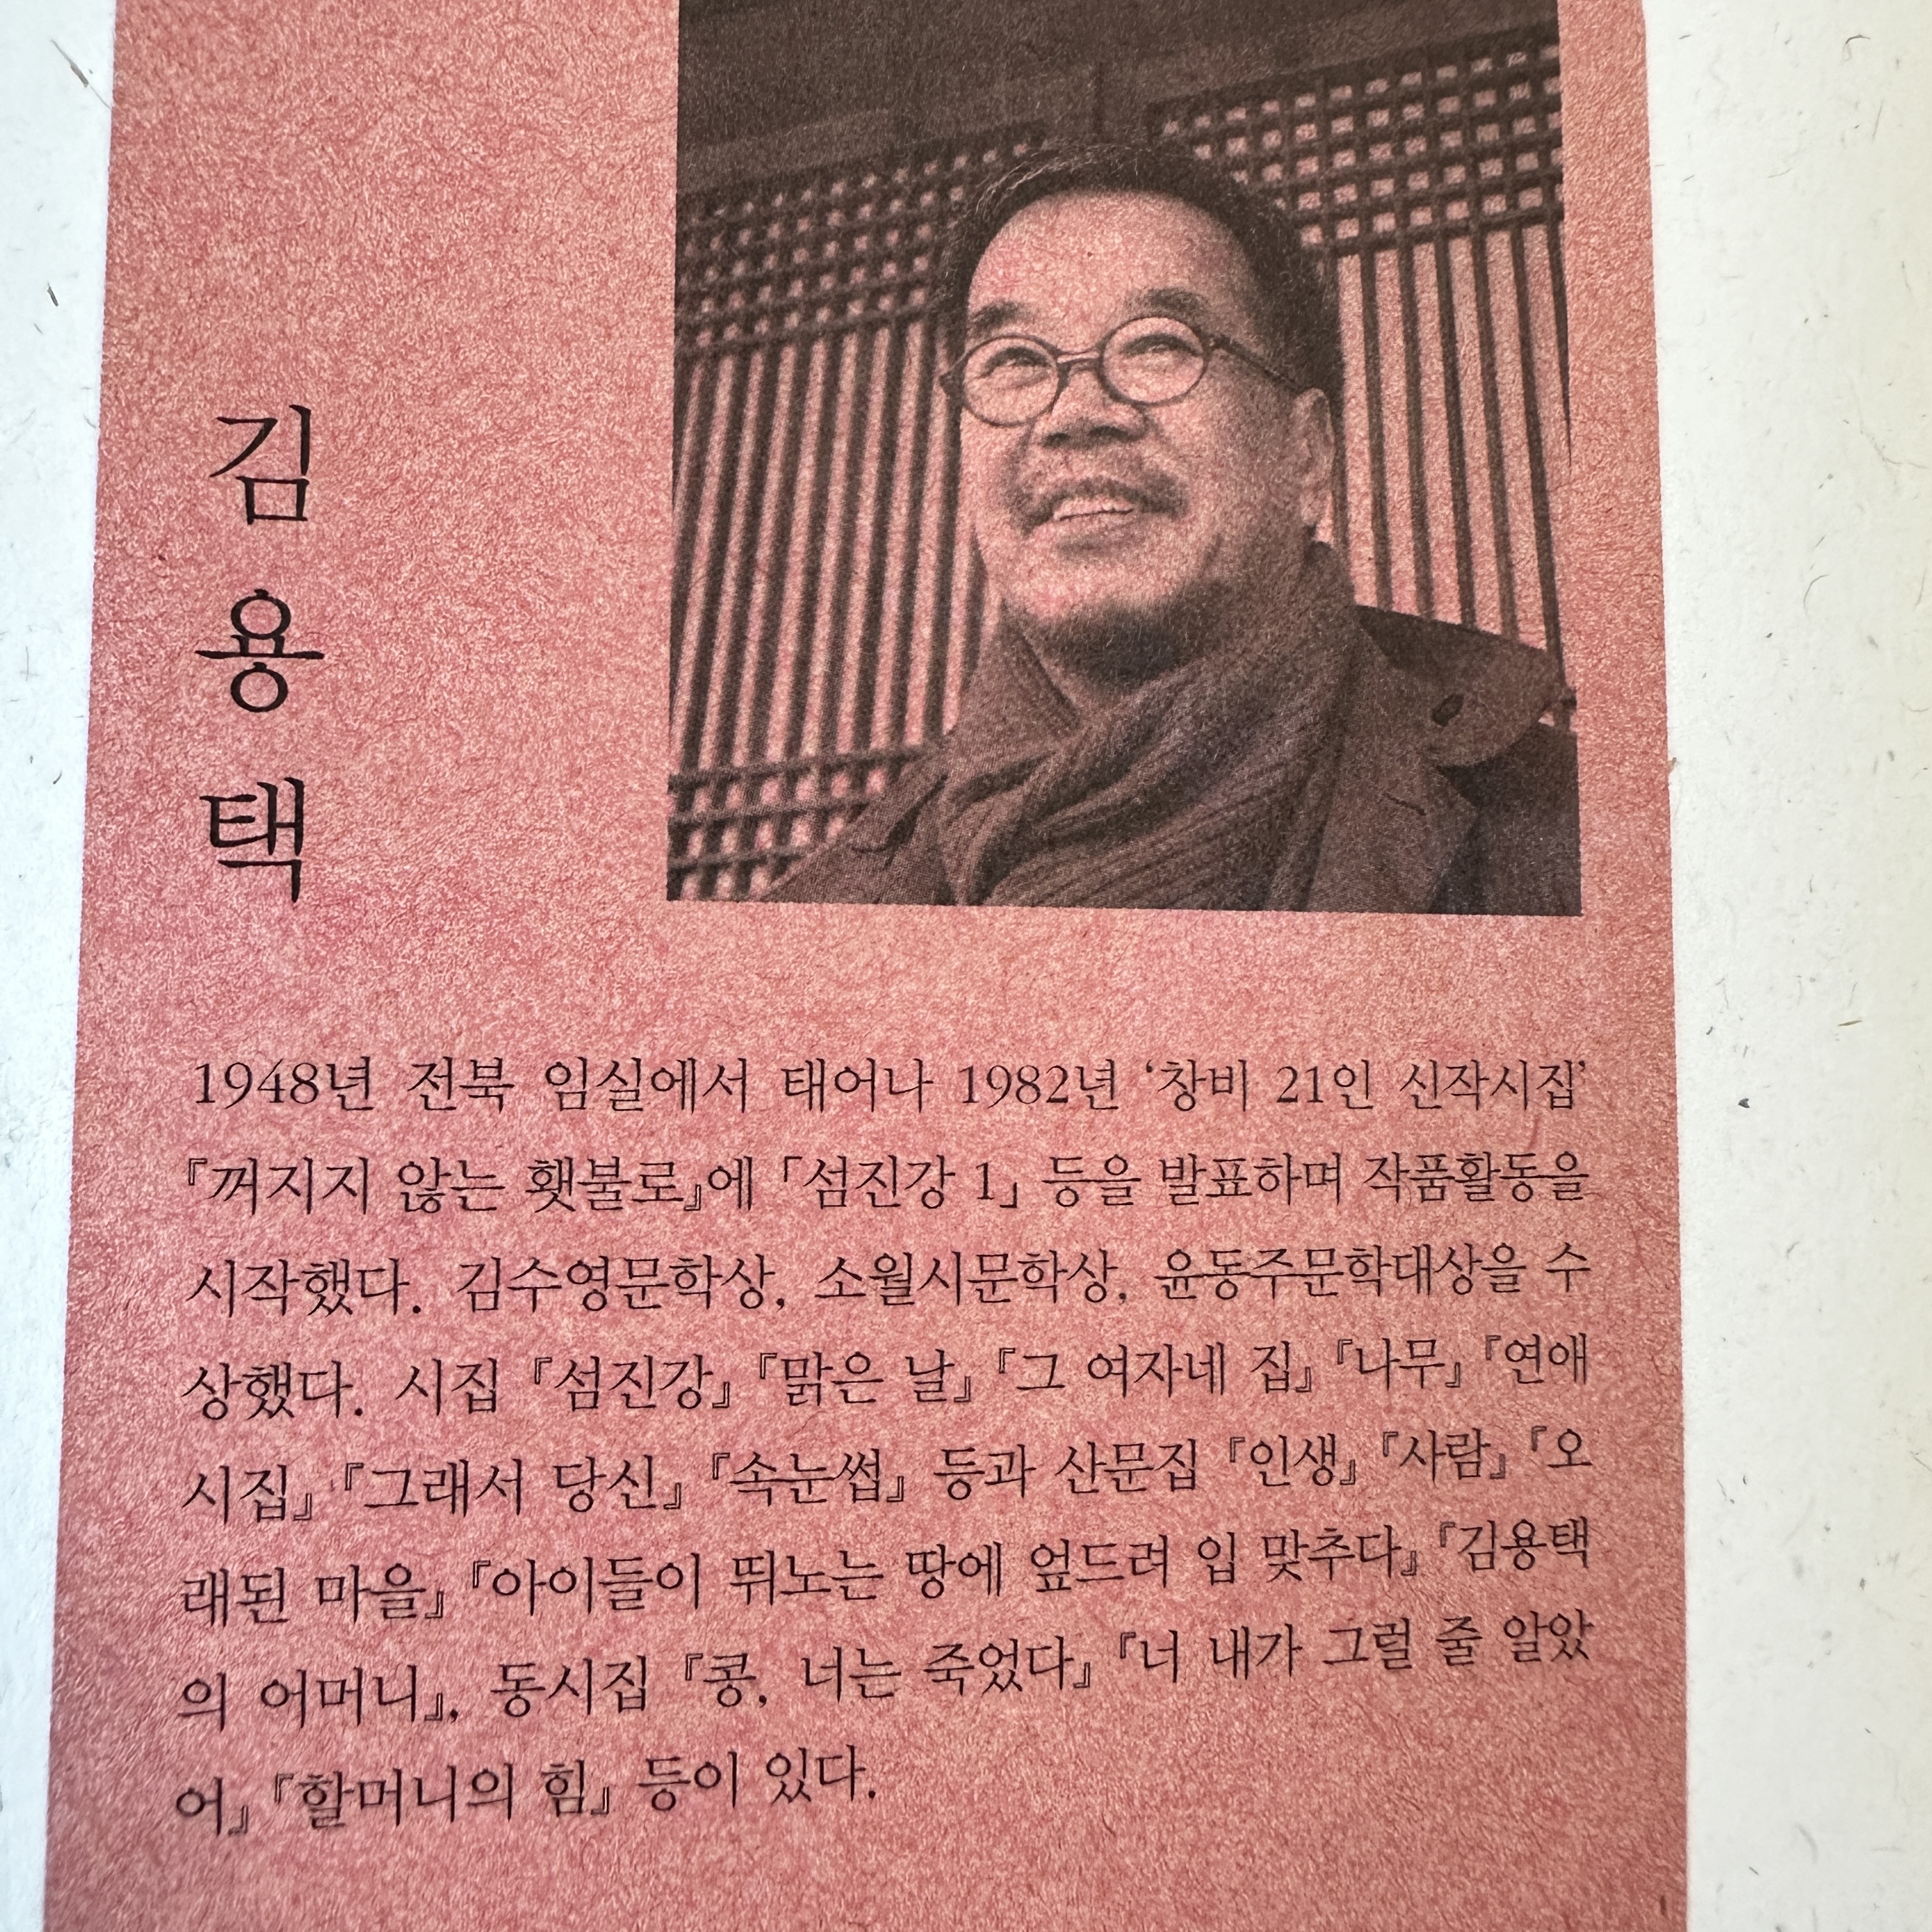 김용택
1948년 전북 임실에서 태어나 1982년 ‘창비 21인 신작시집’
『꺼지지 않는 횃불로』에 「섬진강 1」 등을 발표하며 작품활동을
시작했다. 김수영문학상, 소월시문학상, 윤동주문학대상을 수
상했다. 시집 『섬진강』 『맑은 날』 『그 여자네 집』 『나무』 『연애
시집』 『그래서 당신』 『속눈썹』 등과 산문집 『인생』 『사람』 『오
래된 마을』 『아이들이 뛰노는 땅에 엎드려 입 맞추다』 『김용택
의 어머니』, 동시집 『콩, 너는 죽었다』 『너 내가 그럴 줄 알았
어』 『할머니의 힘』 등이 있다.